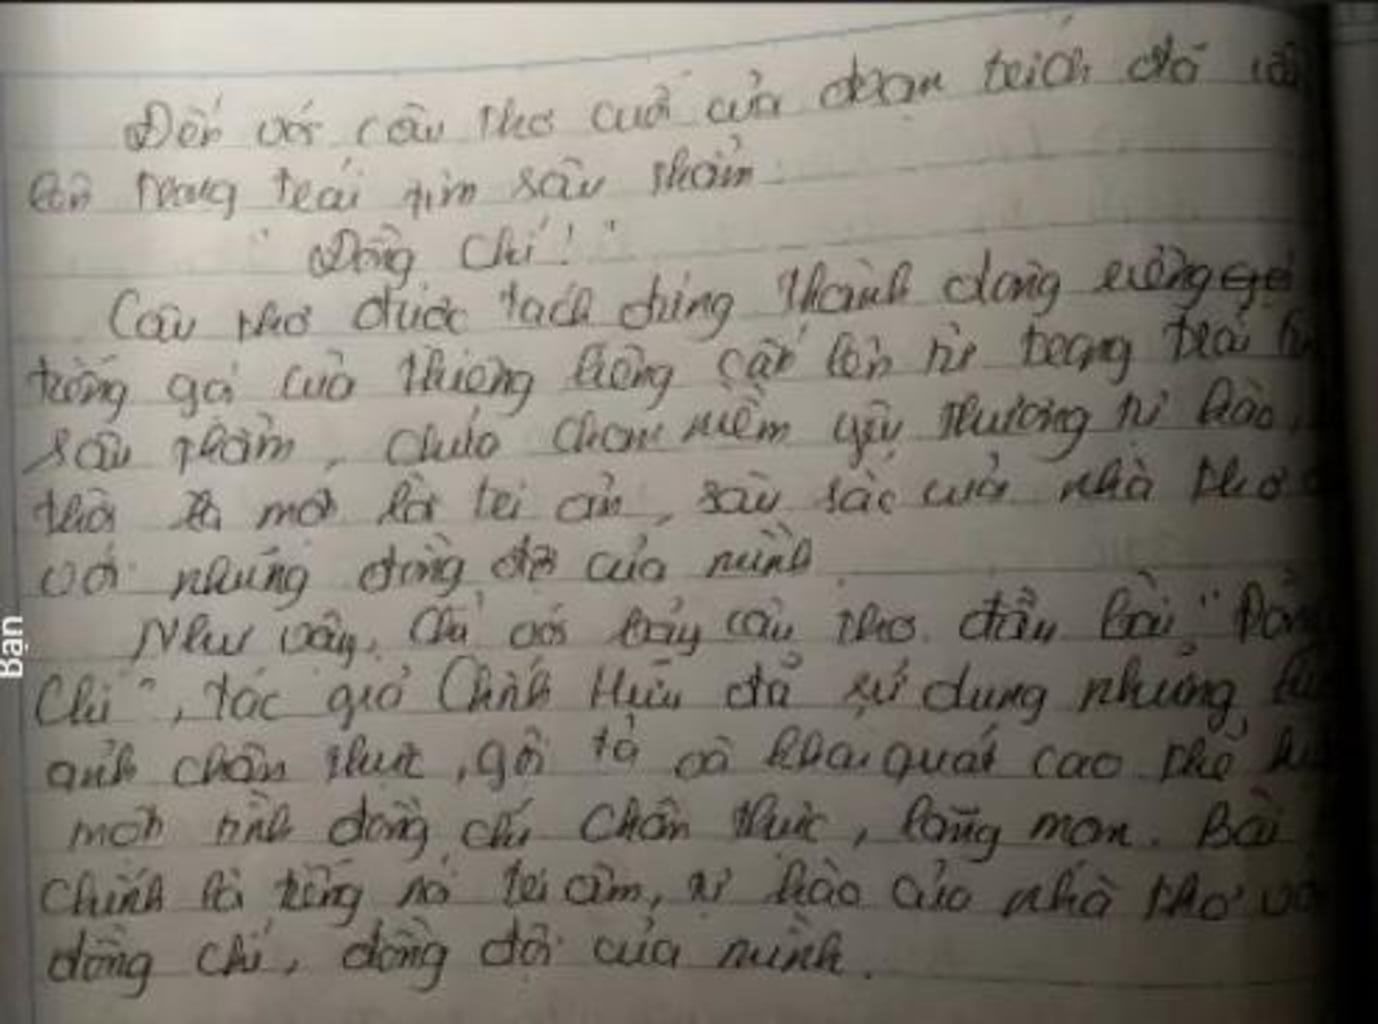 Đến với câu thơ cuối của đoạn trích đó là
lên trong trái tim sâu thẳm
" Đồng Chí! "
Câu thơ được tách đứng thành dòng riêng
tiếng gọi của thiêng liêng cất lên từ trong trái
sâu thẳm, chứa chan niềm yêu thương tự hào,
thời là một lời tri ân, sâu sắc của nhà thơ
với những đồng đội của mình.
Như vậy, chỉ với bảy câu thơ đầu bài "Đồng
Chí", tác giả Chính Hữu đã sử dụng những
ảnh chân thực, gợi tả và khái quát cao thể
một tình đồng chí chân thực, lãng mạn. Bài
chính là tiếng nói tri âm, tự hào của nhà thơ
đồng chí, đồng đội của mình.
Bạn